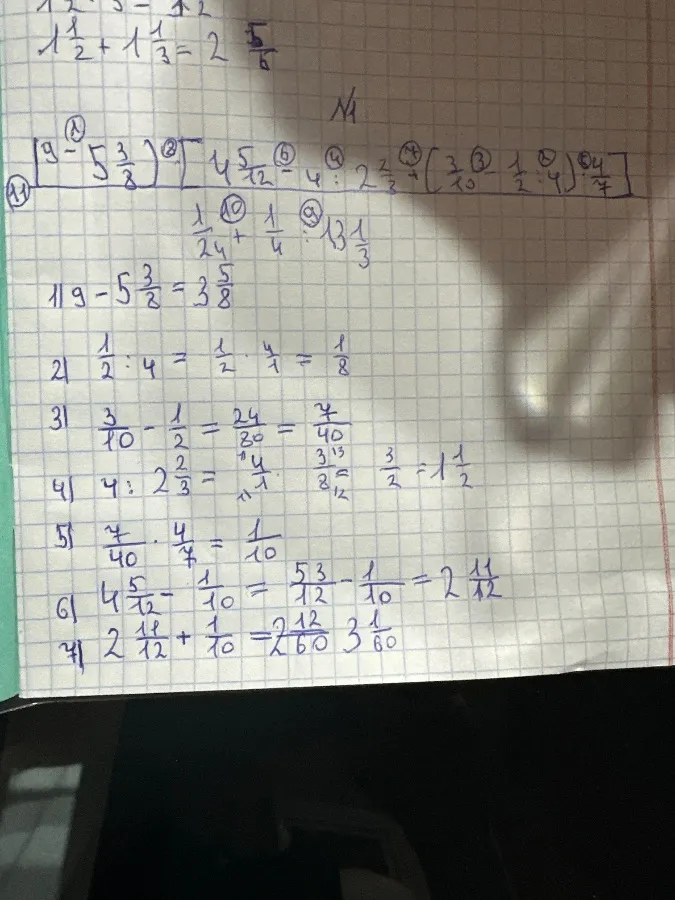 1 1/2 + 1 1/3 = 2 5/6
№1
[9 - 5 3/8) · [4 5/12 - 4 : 2 2/3 + (3/10 - 1/2 : 4) · 4/7]
11
1/24 + 1/4 : 13 1/3
1) 9 - 5 3/8 = 3 5/8
2) 1/2 : 4 = 1/2 · 4/1 = 1/8
3) 3/10 - 1/2 = 24/80 = 7/40
4) 4 : 2 2/3 = 4/1 · 3/8 = 3/2 = 1 1/2
5) 7/40 · 4/7 = 1/10
6) 4 5/12 - 1/10 = 53/12 - 1/10 = 2 11/12
7) 2 11/12 + 1/10 = 2 12/60 3 1/60